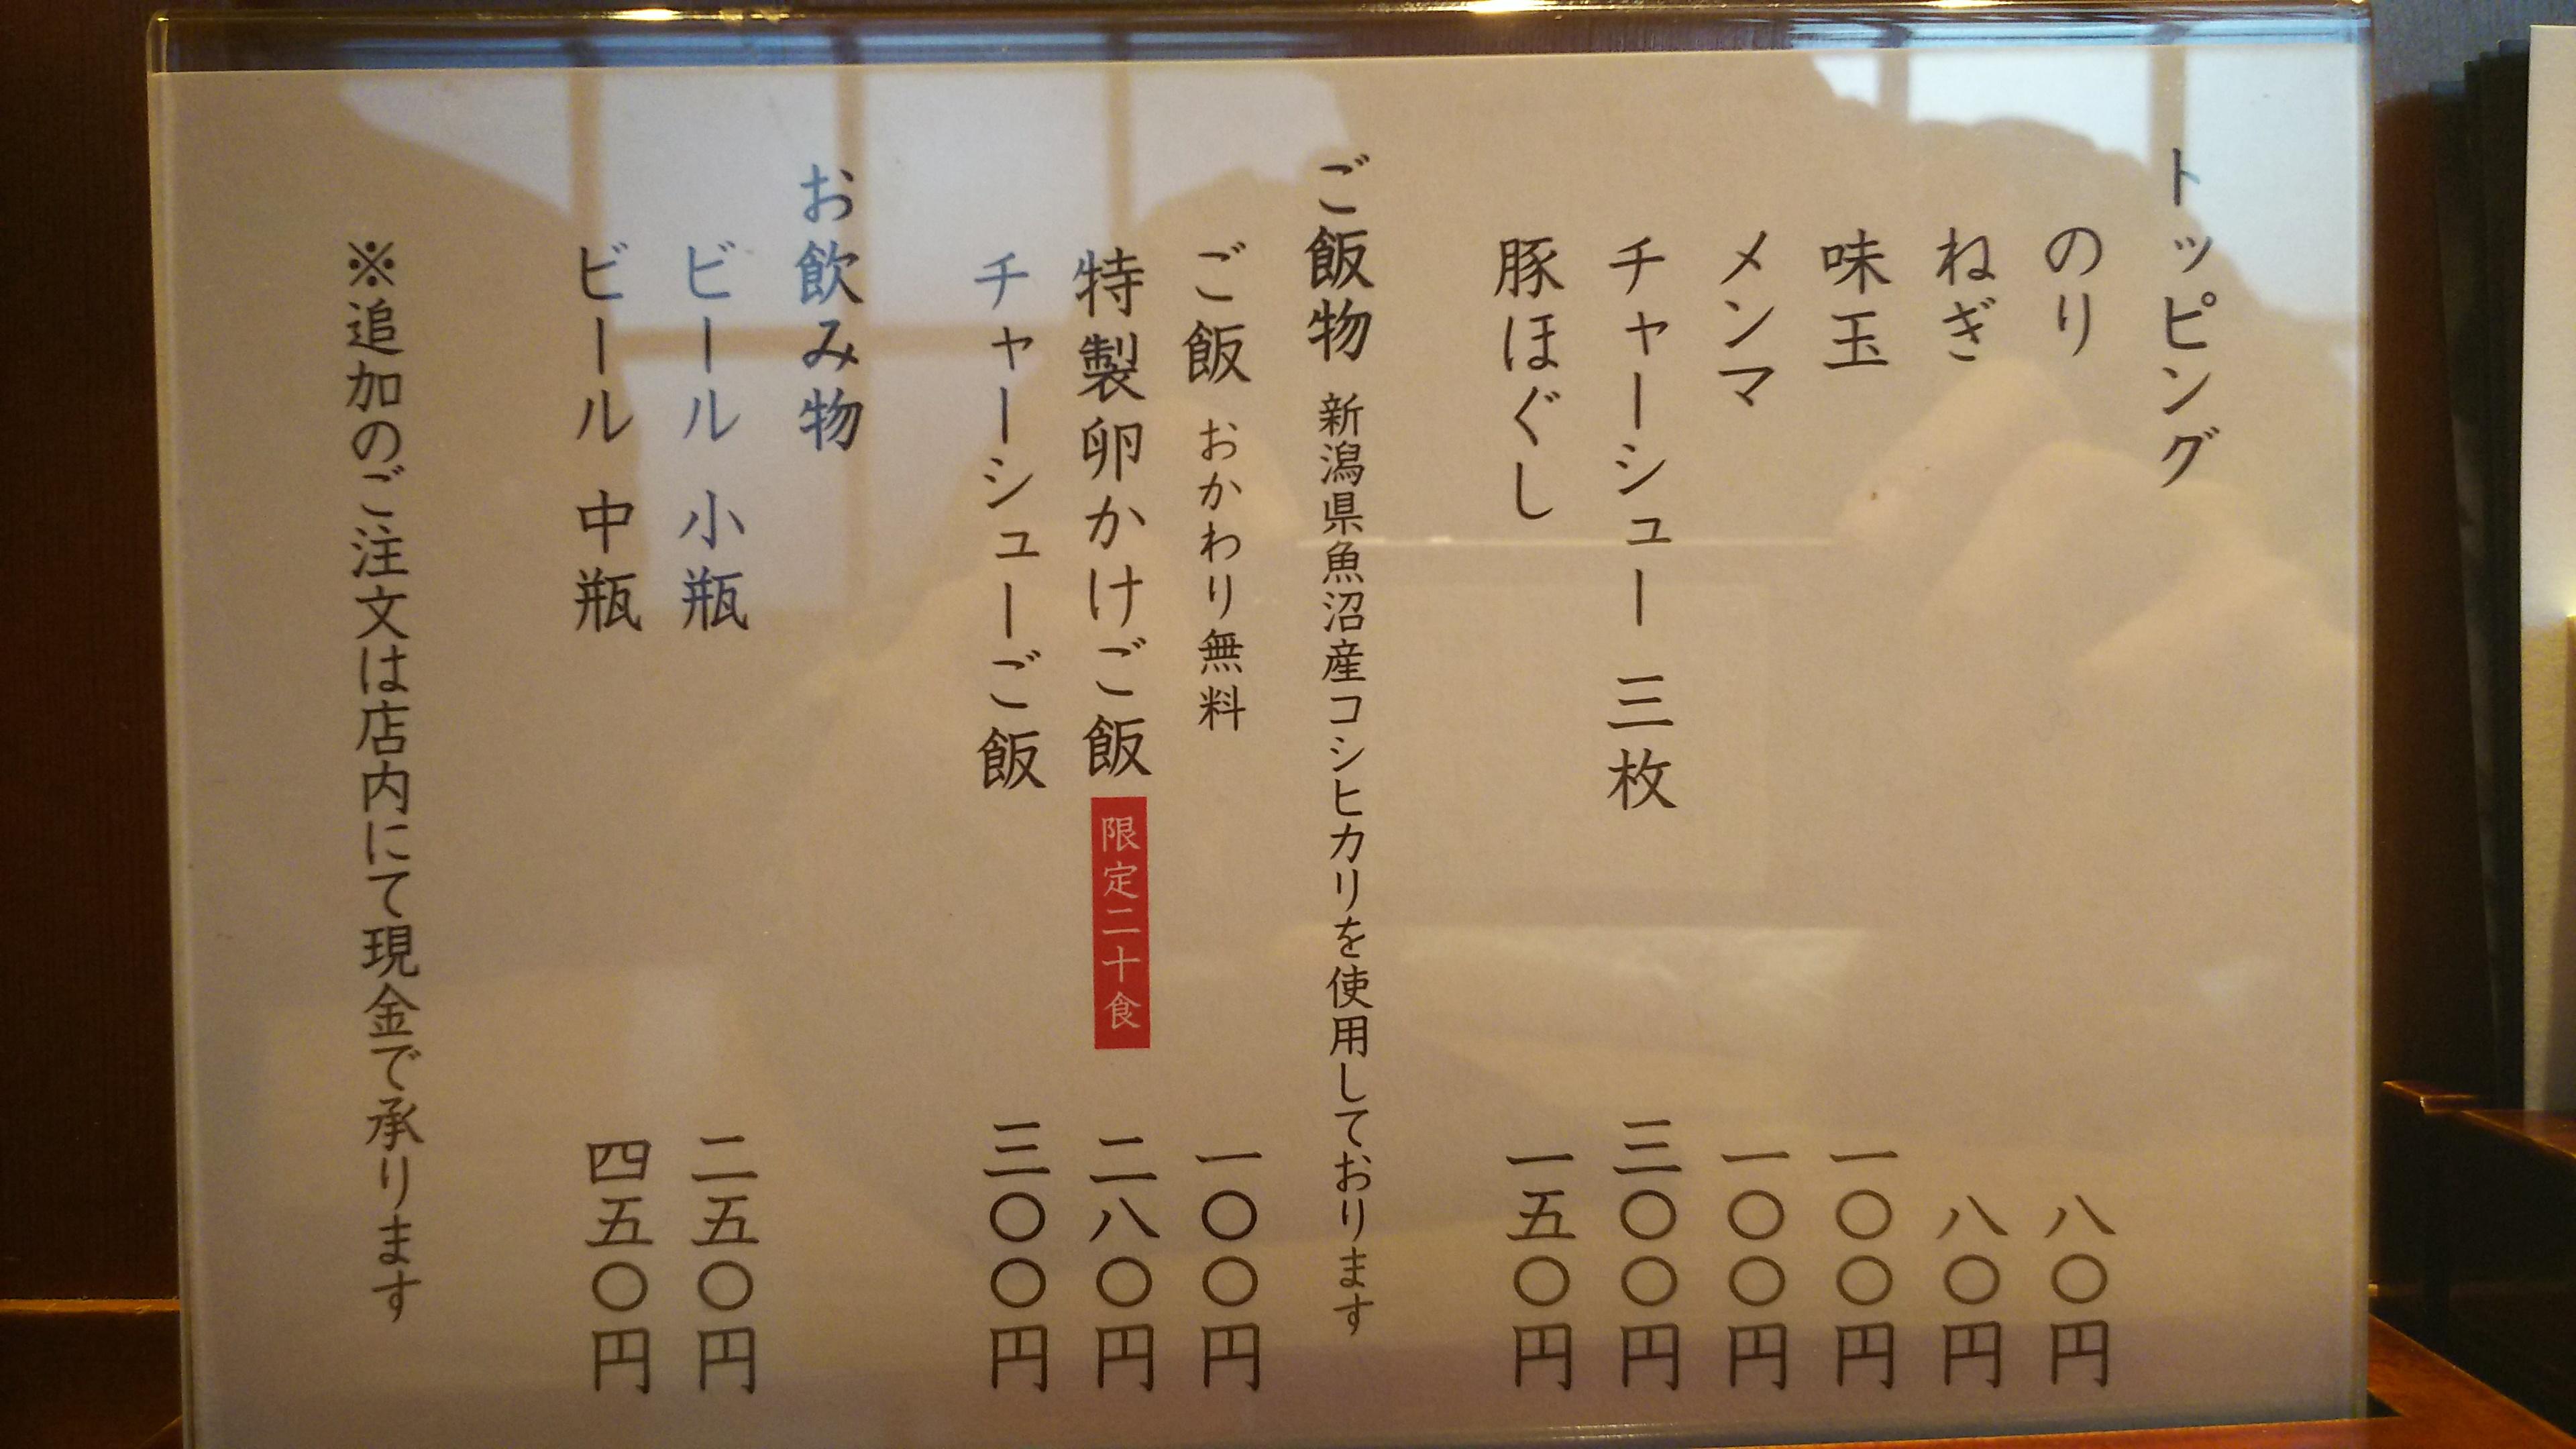 トッピング
のり 八〇円
ねぎ 八〇円
味玉 一〇〇円
メンマ 一〇〇円
チャーシュー 三枚 三〇〇円
豚ほぐし 一五〇円
ご飯物 新潟県魚沼産コシヒカリを使用しております
ご飯 おかわり無料 一〇〇円
特製卵かけご飯 限定二十食 二八〇円
チャーシューご飯 三〇〇円
お飲み物
ビール 小瓶 二五〇円
ビール 中瓶 四五〇円
※追加のご注文は店内にて現金で承ります